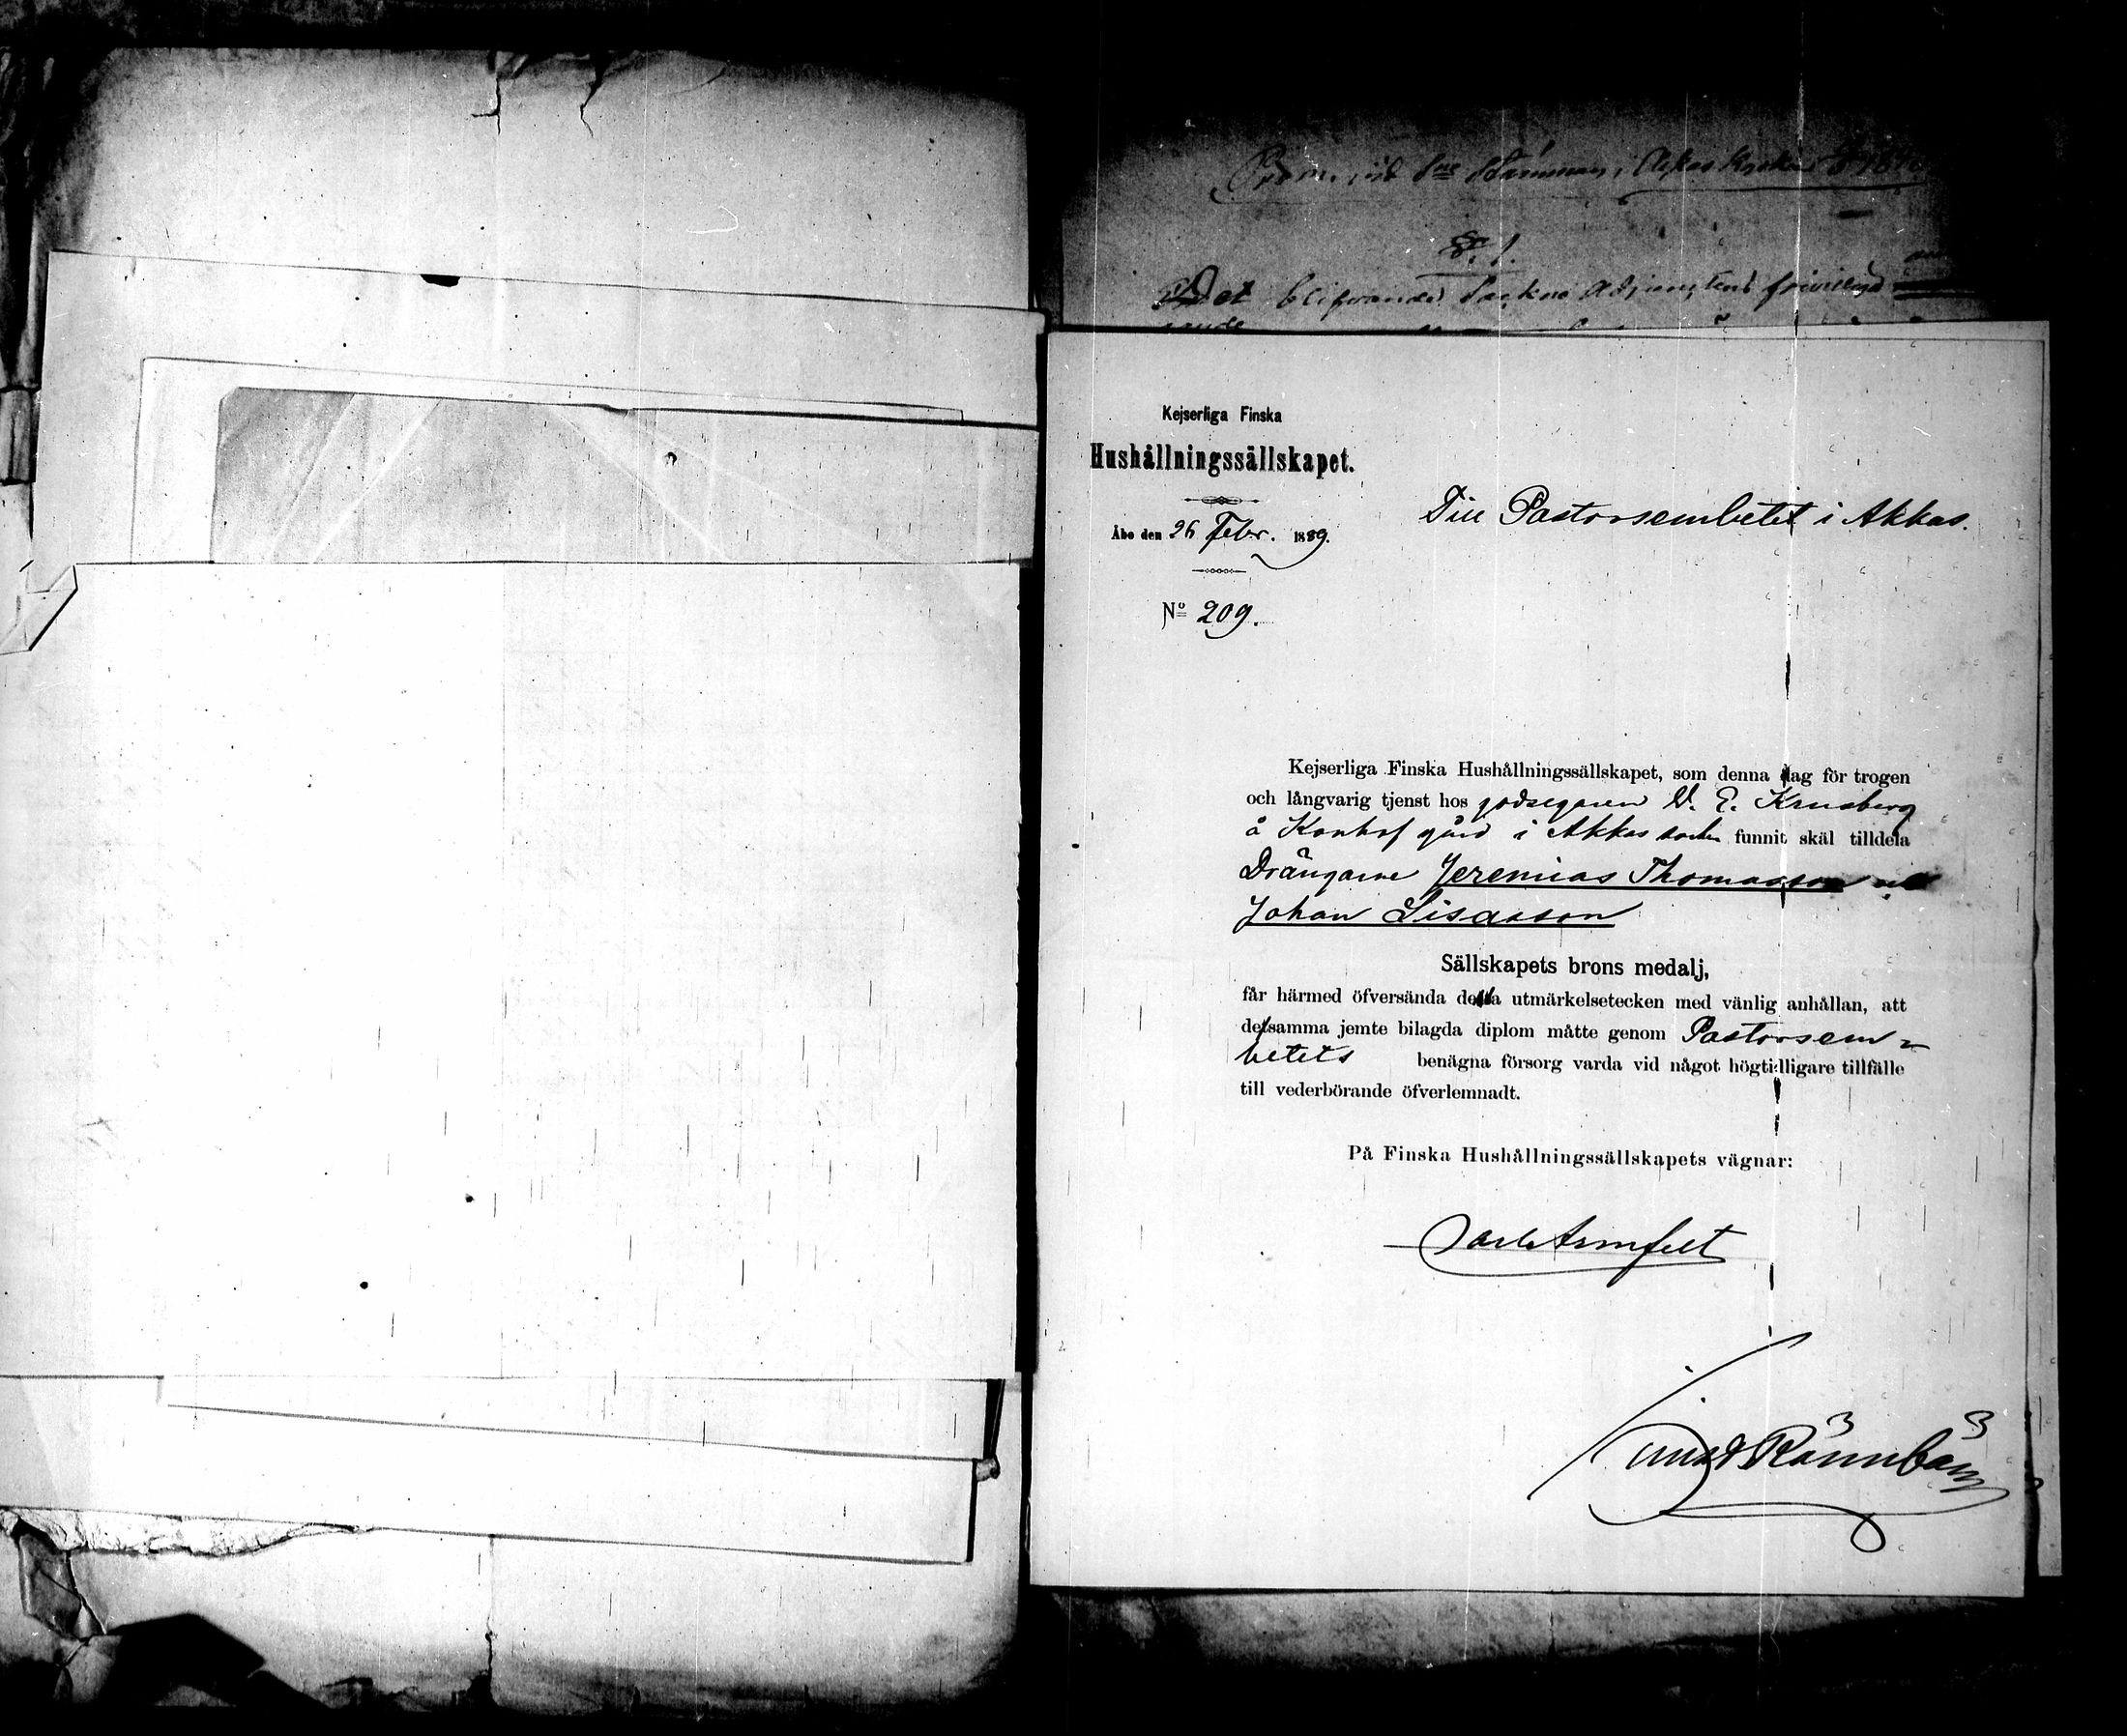 §. 1.
Det blifvande
Kejserliga Finska
Hushållningssällskapet.
Åbo den 26 Febr. 1889.
No 209.
Till Pastorsembetet i Akkas.
Kejserliga Finska Hushållningssällskapet, som denna dag för trogen
och långvarig tjenst hos godsegaren W. E. Krusberg
å Konhof gård i Akkas socken funnit skäl tilldela
Drängarne Jeremias Thomasson och
Johan Lisasson
Sällskapets brons medalj,
får härmed öfversända dessa utmärkelsetecken med vänlig anhållan, att
desamma jemte bilagda diplom måtte genom Pastorsem=
betets benägna försorg varda vid något högtidligare tillfälle
till vederbörande öfverlemnadt.
På Finska Hushållningssällskapets vägnar:
Carl Armfelt